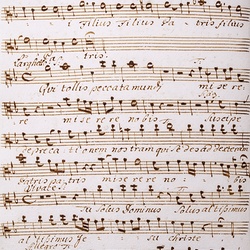 Filius Filius Pa - tris filius
Larghetto
Pa - tris.
Qui tollis peccata mundi mi se re
re mi se re re no bis Suscipe
depreca ti o nem nostram qui sedes ad Dexteram
Patris mi se re re no bis
Vivace
Tu Solus Dominus Solus altissimus
al tissimus Je su christe